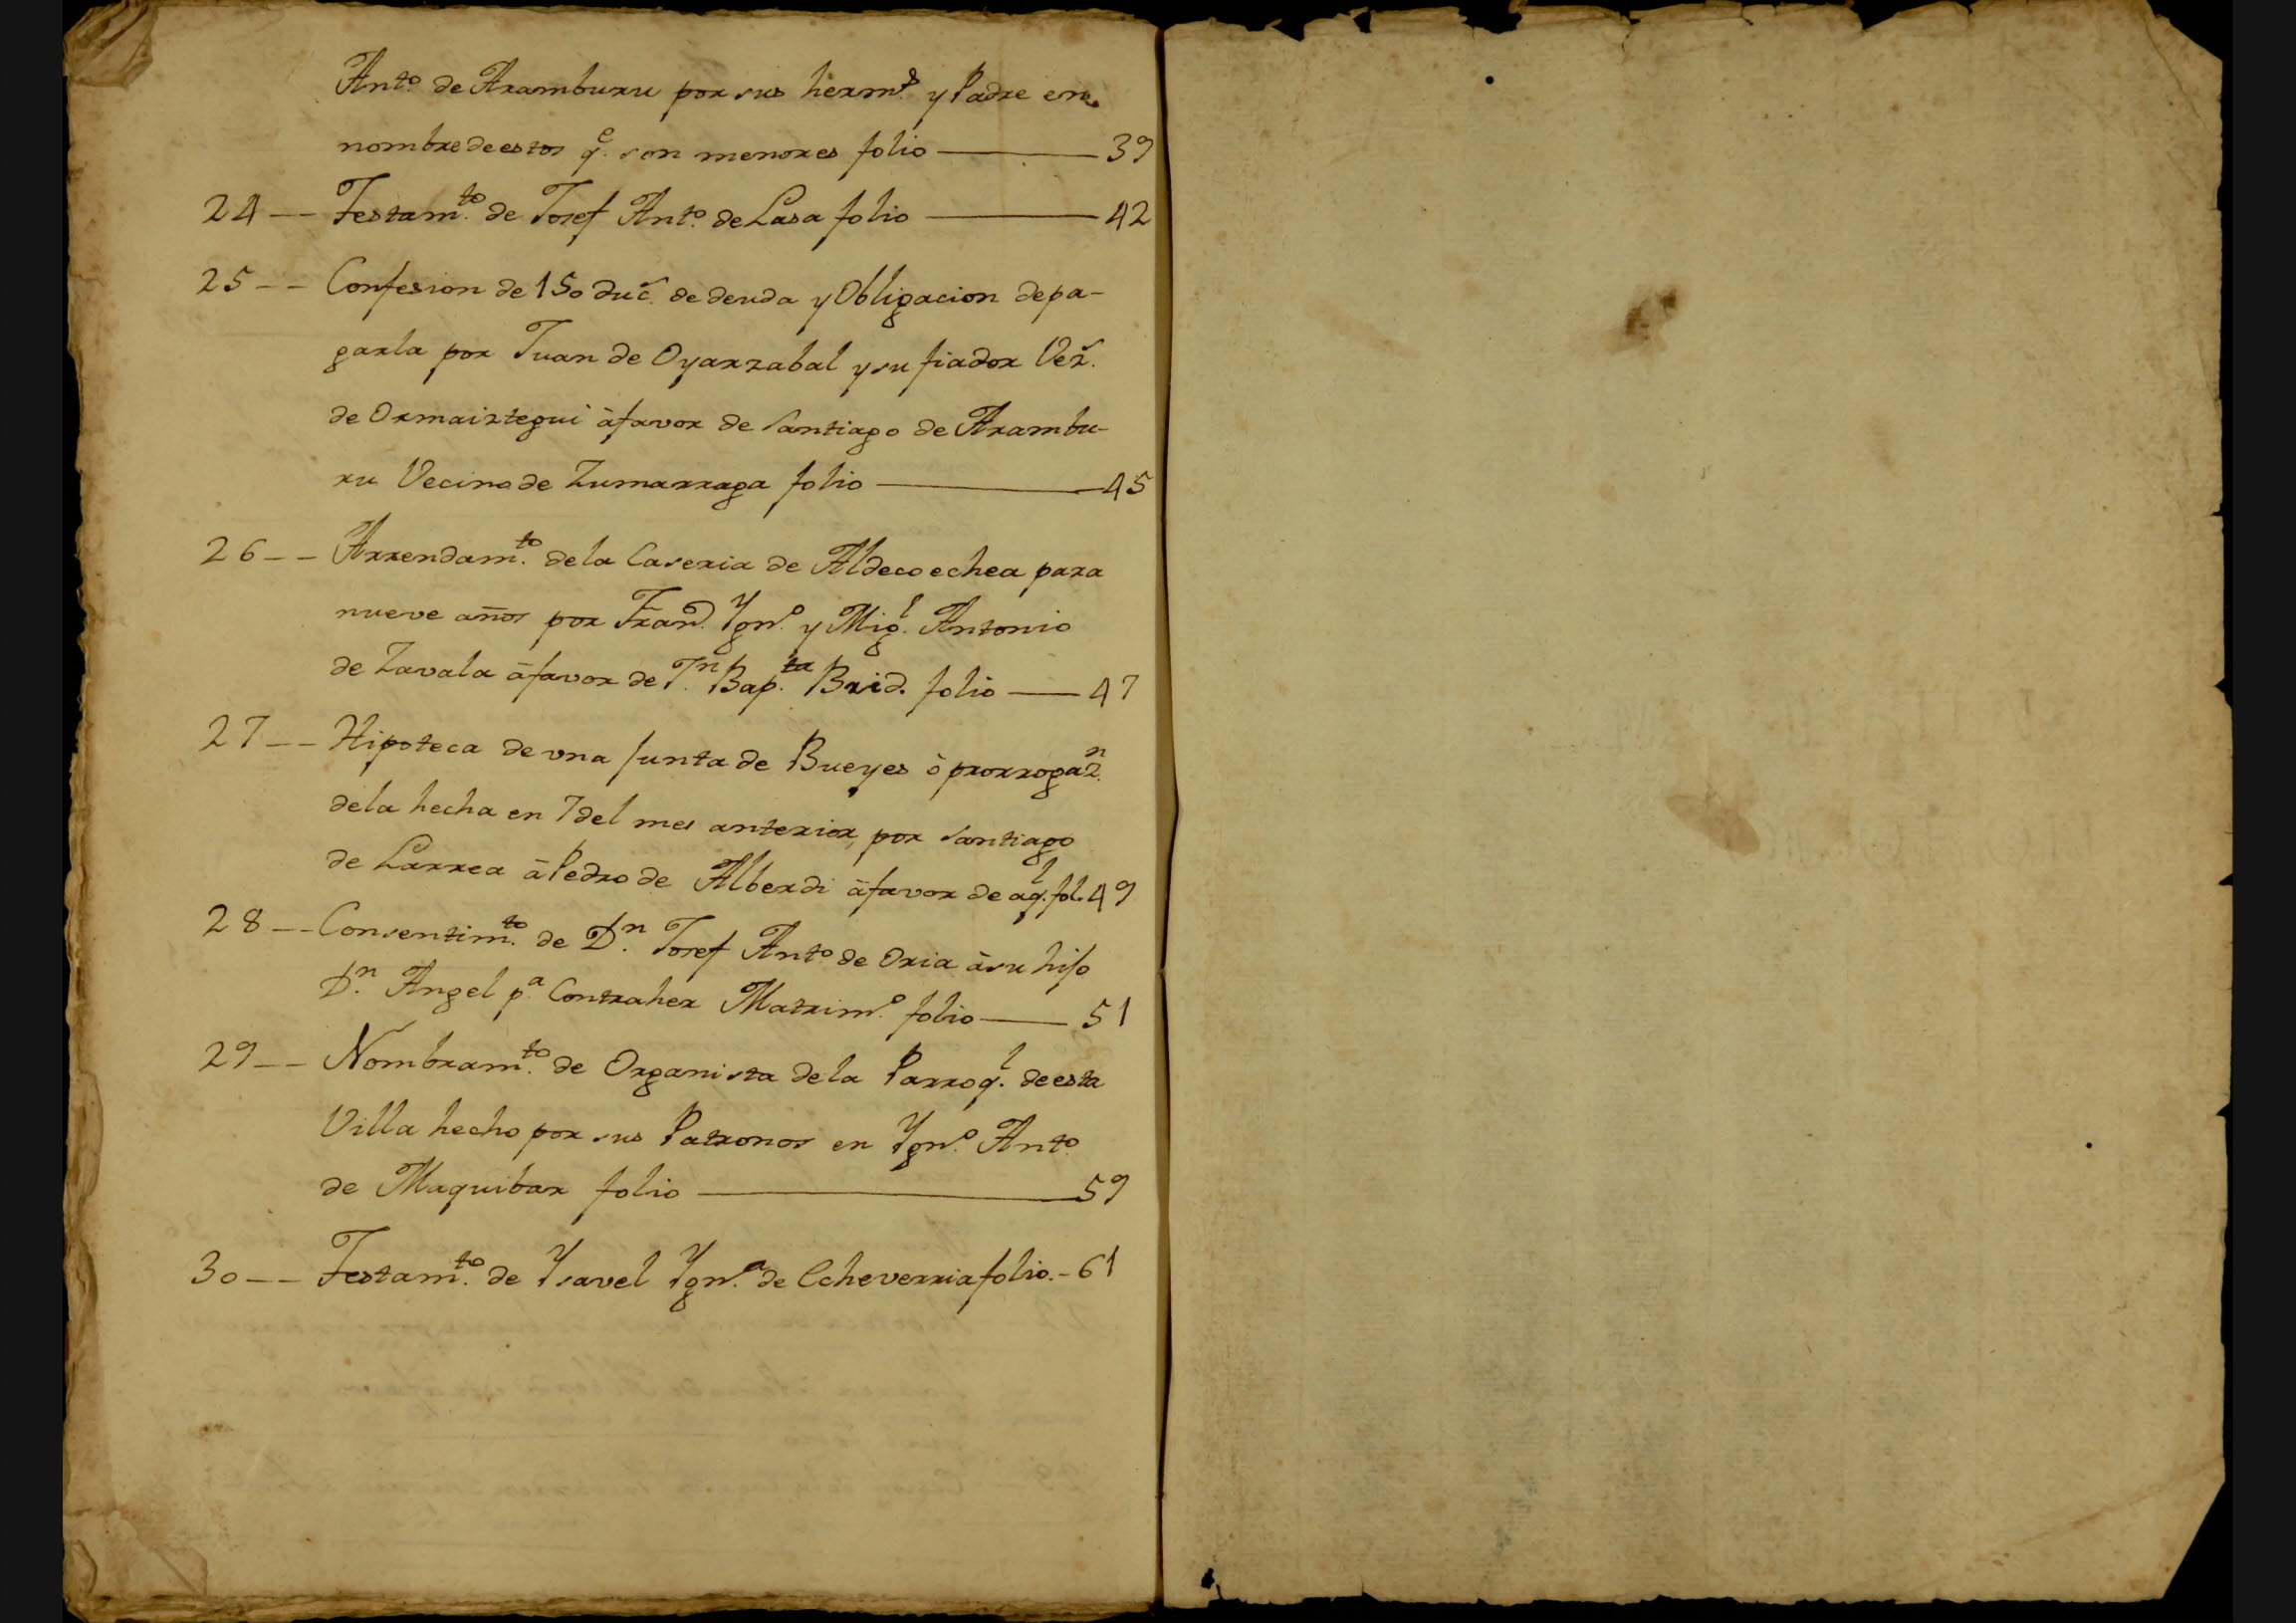 Ant.º de Aramburu por sus herm.s y Padre en
nombre de estos q.e son menores folio — 39
24 — Testam.to de Josef Ant.º de Lasa folio — 42
25 — Confesion de 150 duc.s de deuda y Obligacion de pa-
garla por Juan de Oyarzabal y su fiador Vez.
de Ormaiztegui à favor de Santiago de Arambu-
ru Vecino de Zumarraga folio — 45
26 — Arrendam.to de la Caseria de Aldecoechea para
nueve años por Fran.co Ygn.º y Mig.l Antonio
de Zavala à favor de J.n Bap.ta Brid. folio — 47
27 — Hipoteca de una Junta de Bueyes ò prorrogaz.n
de la hecha en 7 del mes anterior, por Santiago
de Larrea à Pedro de Alberdi à favor de aq.l fol. 49
28 — Consentim.to de D.n Josef Ant.º de Oria à su hijo
D.n Angel p.a Contraher Matrim.º folio — 51
29 — Nombram.to de Organista de la Parroq.l de esta
Villa hecho por sus Patronos en Ygn.º Ant.º
de Maquibar folio — 59
30 — Testam.to de Ysavel Ygn.a de Echeverria folio. - 61